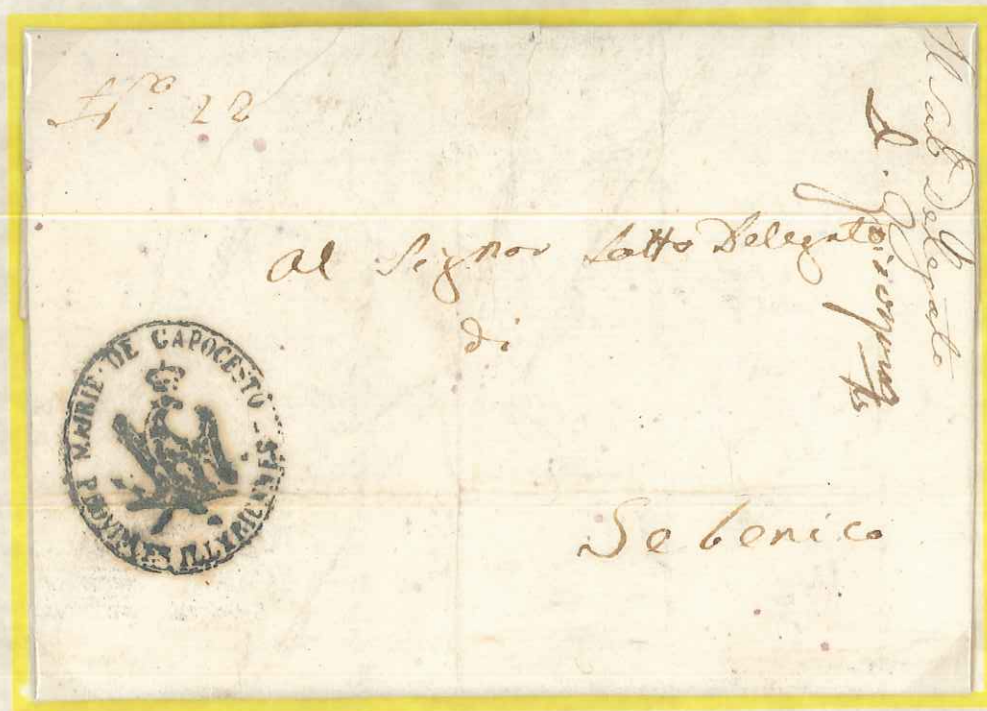 No 22
Al Signor Sotto Delegato
di
Sebenico
MAIRIE DE CAPOCESTO -
PROVINCES ILLYRIENNES
Delegato